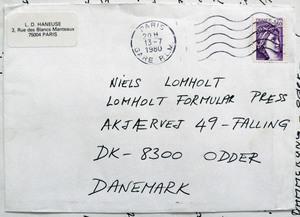 L. D. HANEUSE
3, Rue des Blancs Manteaux
75004 PARIS
PARIS
20H
13-7
1980
GARE P.L.M
FRANCE
NIELS LOMHOLT
LOMHOLT FORMULAR PRESS
AKJÆRVEJ 49-FALLING
DK-8300 ODDER
DANEMARK